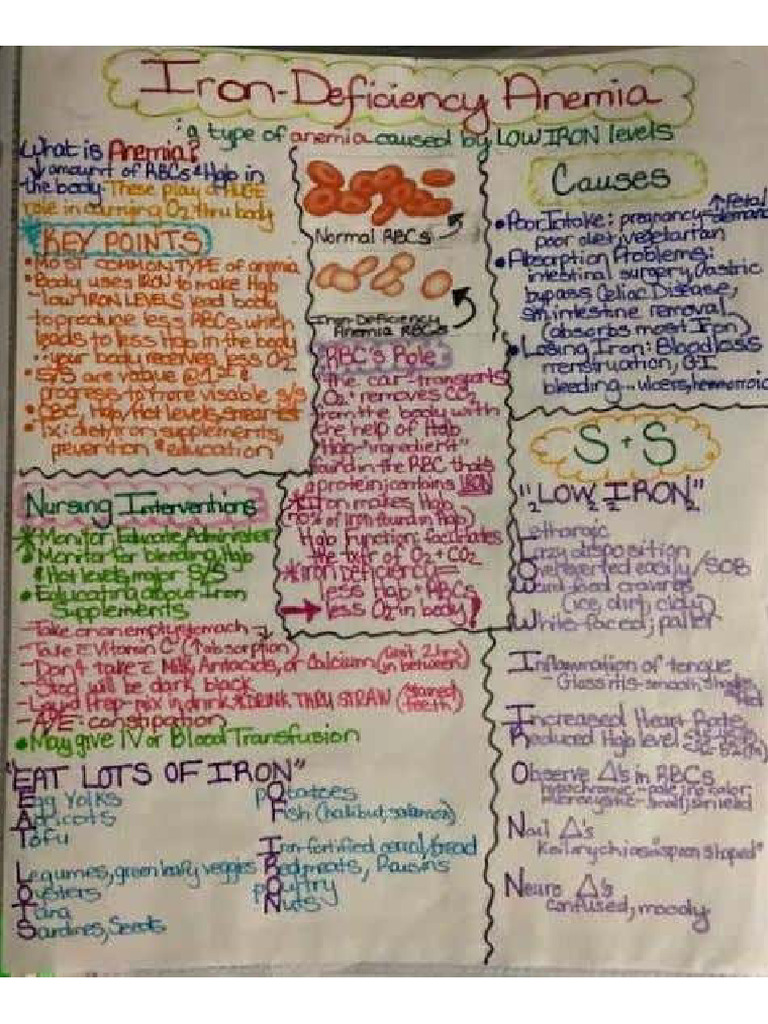 Iron-Deficiency Anemia
: a type of anemia caused by LOW IRON levels
What is Anemia?
↓ amount of RBCs & Hgb in
the body. These play a HUGE
role in carrying O2 thru body
KEY POINTS
• MOST COMMON TYPE of anemia
• Body uses IRON to make Hgb
- low IRON LEVELS lead body
to produce less RBCs which
leads to less Hgb in the body
... your body receives less O2
• S/S are vague @ 1st &
progress to more visable s/s
• CBC, Hgb/Hct levels, smear test
• Tx: diet/iron supplements,
pevention & education
Normal RBCs
Iron-Deficiency
Anemia RBCs
RBC's Role
the car-transports
O2 + removes CO2
from the body with
the help of Hgb
Hgb-"ingredient"
found in the RBC that's
a protein; contains IRON
* Iron makes Hgb
70% of iron found in Hgb)
Hgb Function: facilitates
the txfr of O2 + CO2
* Iron Deficiency =
less Hgb + RBCs
→ less O2 in body!
Causes
• Poor Intake: pregnancy - ↑ Fetal demand
poor diet, vegetarian
• Absorption Problems:
intestinal surgery, Gastric
bypass, Celiac Disease,
sm intestine removal
(absorbs most Iron)
• Losing Iron: Blood loss
menstruation, GI
bleeding... ulcers, hemorroid
S + S
"LOW IRON"
2 2 2
Lethargic
Lazy disposition
Overexerted easily/SOB
Weird food cravings
(ice, dirt, clay)
White-faced; paller
Inflammation of tongue
- Glossitis-smooth,
Increased Heart Rate
Reduced Hgb level
Observe Δ's in RBCs
hypochromic - pale in color
microcystic - small
Nail Δ's
"spoon shaped"
Neuro Δ's
confused, moody
Nursing Interventions
* Monitor, Educate, Administer
• Monitor for bleeding, Hgb
& Hct levels, major S/S
• Educating about Iron
Supplements
- Take on an empty stomach
- Take c Vitamin C (↑ absorption)
- Don't take c Milk, Antacids, or Calcium (wait 2 hrs in between)
- Stool will be dark black
- Liquid Prep-mix in drink & DRINK THRU STRAW (stained teeth)
- A/E: constipation
• May give IV or Blood Transfusion
"EAT LOTS OF IRON"
Egg Yolks
Apricots
Tofu
Legumes, green leafy veggies
Oysters
Tuna
Sardines, Seeds
pOtatoes
Fish (halibut, salamon)
Iron-fortified cereal/bread
Red meats, Raisins
pOultry
Nuts